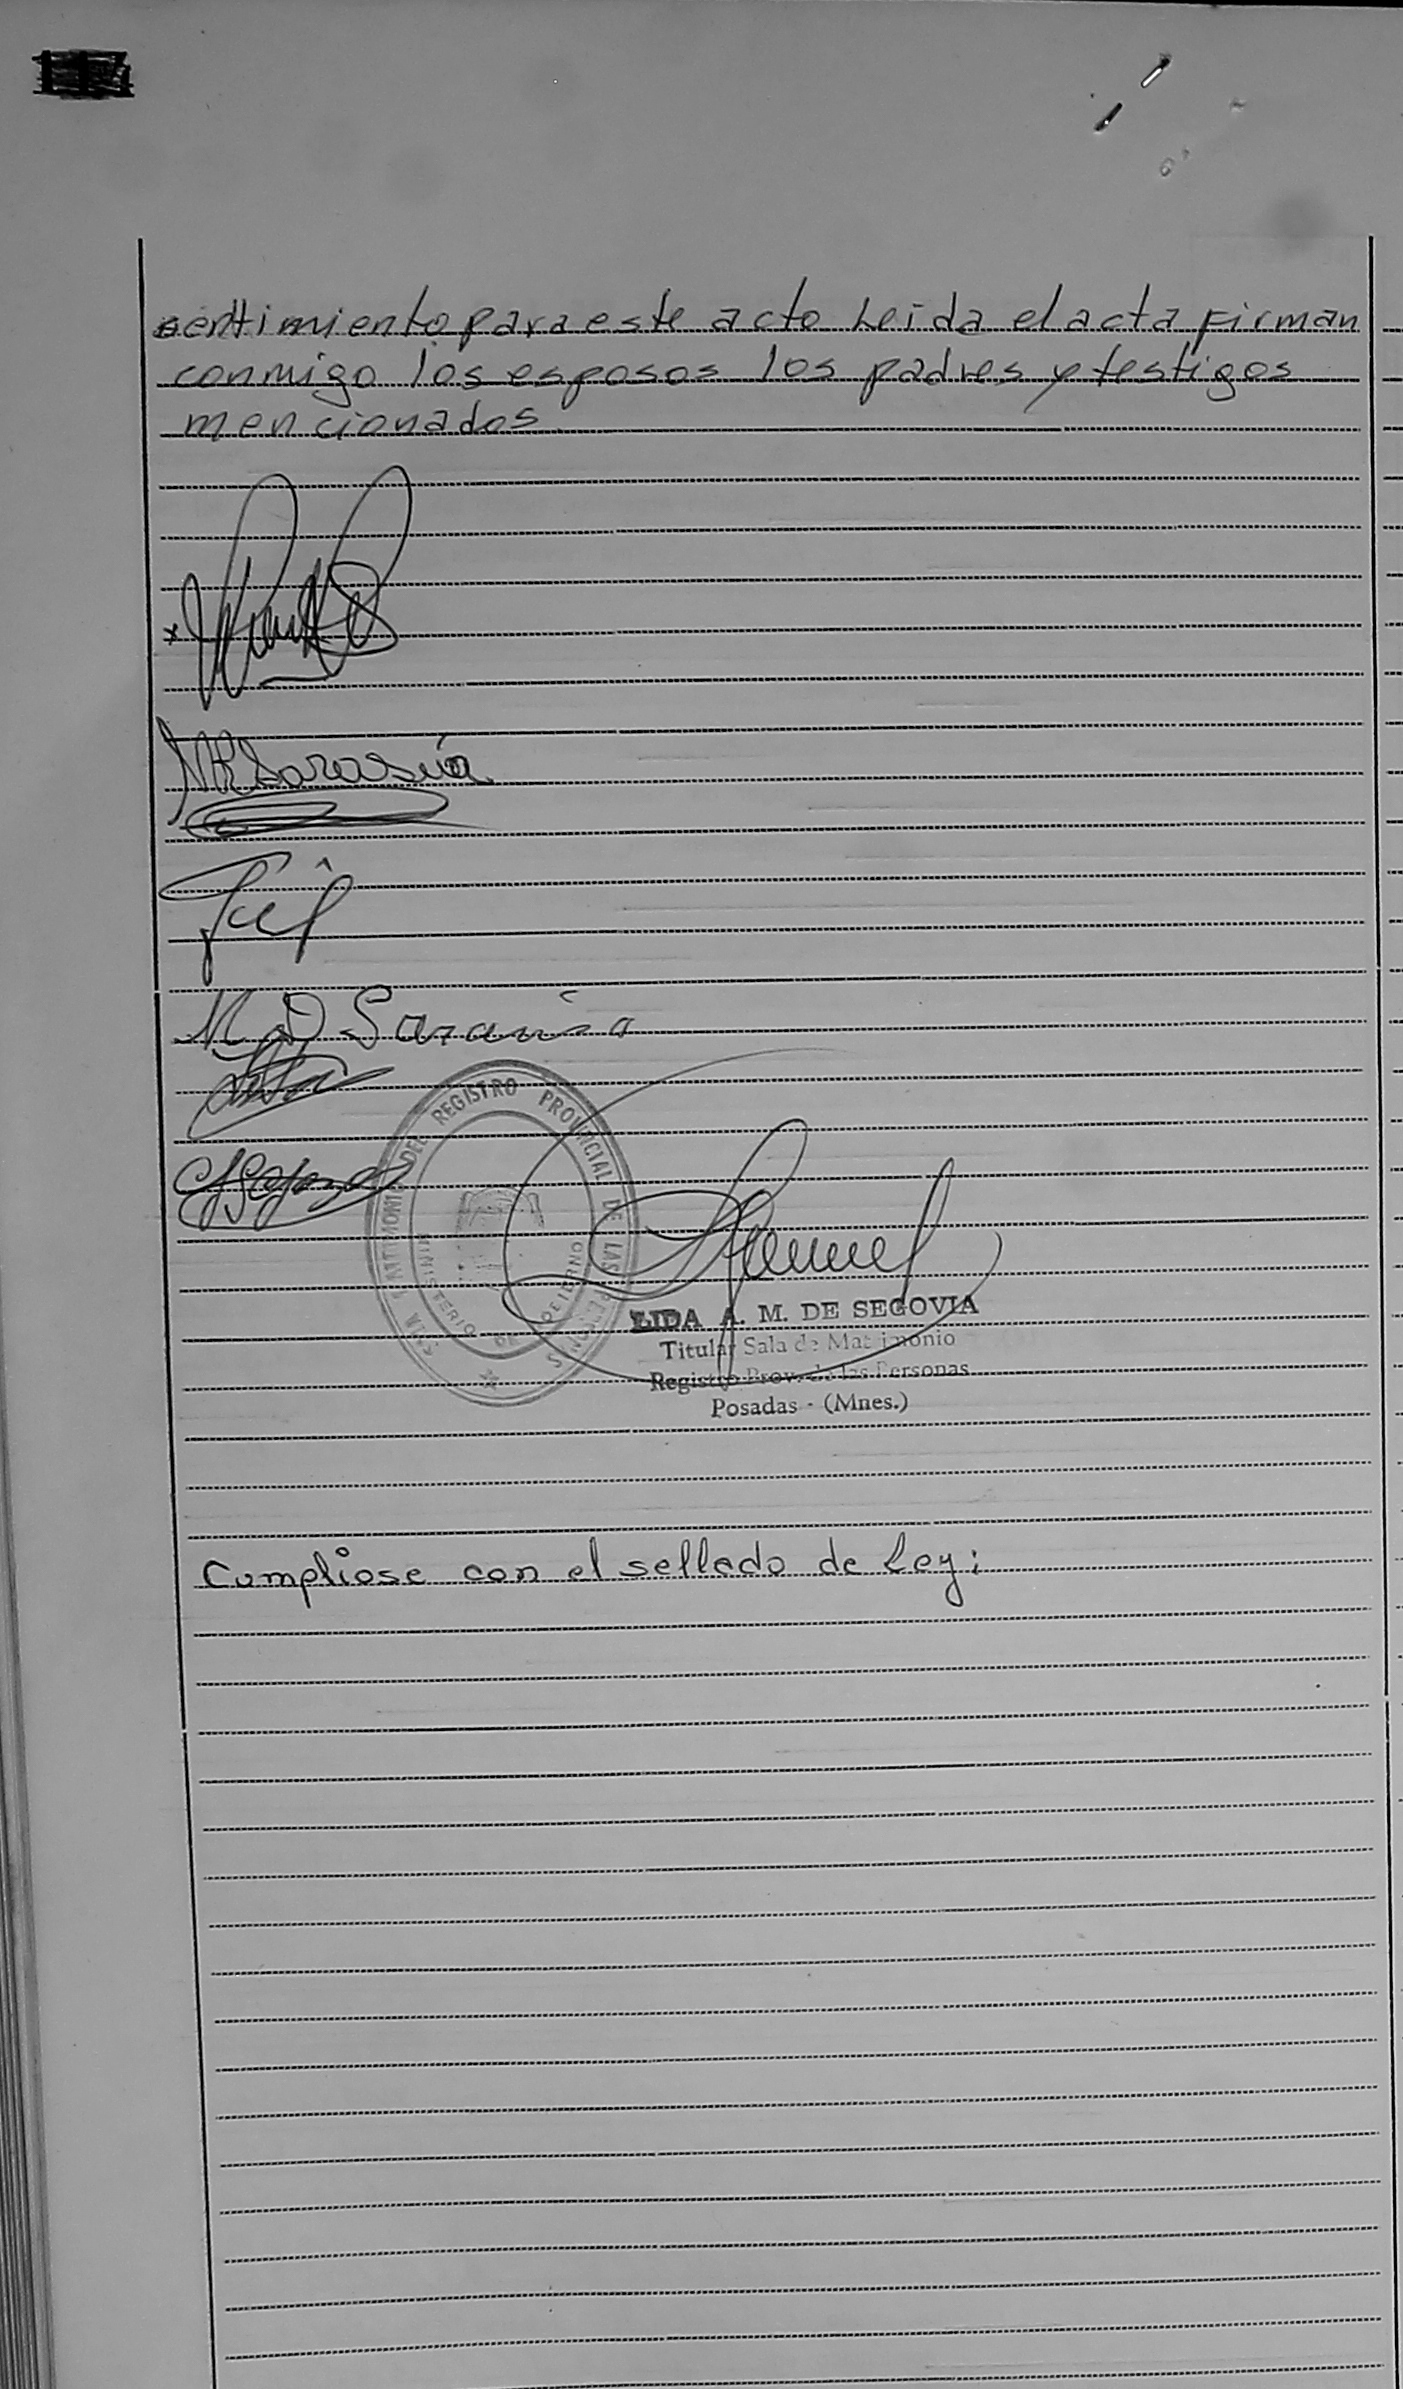 sentimiento para este acto Leida el acta firman
conmigo los esposos los padres y testigos
mencionados.
x
MR Sarasúa
DEL REGISTRO PROVINCIAL DE LAS PERSONAS
MINISTERIO DE GOBIERNO
LIDA A. M. DE SEGOVIA
Titular Sala de Matrimonio
Registro Prov. de las Personas
Posadas - (Mnes.)
Cumpliose con el sellado de Ley;